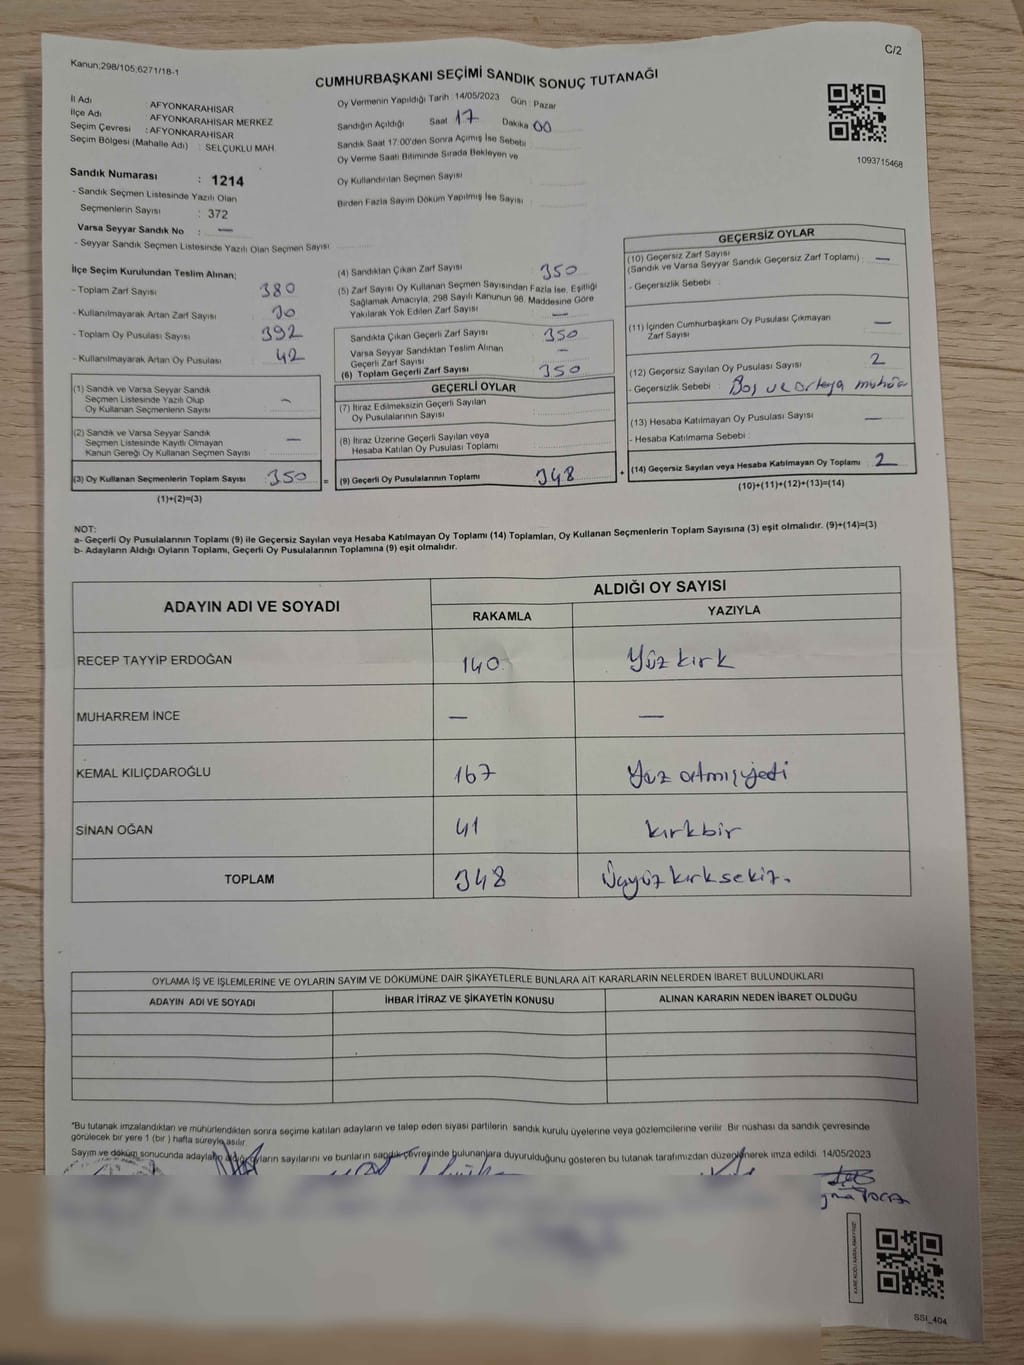 Kanun;298/105;6271/18-1
C/2
CUMHURBAŞKANI SEÇİMİ SANDIK SONUÇ TUTANAĞI
İl Adı AFYONKARAHİSAR
İlçe Adı AFYONKARAHİSAR MERKEZ
Seçim Çevresi : AFYONKARAHİSAR
Seçim Bölgesi (Mahalle Adı) : SELÇUKLU MAH.
Oy Vermenin Yapıldığı Tarih :14/05/2023 Gün : Pazar
Sandığın Açıldığı Saat 17 Dakika 00
Sandık Saat 17:00'den Sonra Açımış İse Sebebi
Oy Verme Saati Bitiminde Sırada Bekleyen ve
Oy Kullandırılan Seçmen Sayısı
Birden Fazla Sayım Döküm Yapılmış İse Sayısı :
1093715468
Sandık Numarası : 1214
- Sandık Seçmen Listesinde Yazılı Olan
Seçmenlerin Sayısı : 372
Varsa Seyyar Sandık No : —
- Seyyar Sandık Seçmen Listesinde Yazılı Olan Seçmen Sayısı
İlçe Seçim Kurulundan Teslim Alınan;
- Toplam Zarf Sayısı 380
- Kullanılmayarak Artan Zarf Sayısı 30
- Toplam Oy Pusulası Sayısı 392
- Kullanılmayarak Artan Oy Pusulası 42
(1) Sandık ve Varsa Seyyar Sandık
Seçmen Listesinde Yazılı Olup
Oy Kullanan Seçmenlerin Sayısı –
(2) Sandık ve Varsa Seyyar Sandık
Seçmen Listesinde Kayıtlı Olmayan
Kanun Gereği Oy Kullanan Seçmen Sayısı —
(3) Oy Kullanan Seçmenlerin Toplam Sayısı 350
(1)+(2)=(3)
(4) Sandıktan Çıkan Zarf Sayısı 350
(5) Zarf Sayısı Oy Kullanan Seçmen Sayısından Fazla İse, Eşitliği
Sağlamak Amacıyla, 298 Sayılı Kanunun 98. Maddesine Göre
Yakılarak Yok Edilen Zarf Sayısı —
Sandıkta Çıkan Geçerli Zarf Sayısı 350
Varsa Seyyar Sandıktan Teslim Alınan
Geçerli Zarf Sayısı –
(6) Toplam Geçerli Zarf Sayısı 350
GEÇERLİ OYLAR
(7) İtiraz Edilmeksizin Geçerli Sayılan
Oy Pusulalarının Sayısı
(8) İtiraz Üzerine Geçerli Sayılan veya
Hesaba Katılan Oy Pusulası Toplamı
= (9) Geçerli Oy Pusulalarının Toplamı 348
GEÇERSİZ OYLAR
(10) Geçersiz Zarf Sayısı
(Sandık ve Varsa Seyyar Sandık Geçersiz Zarf Toplamı) : —
- Geçersizlik Sebebi :
(11) İçinden Cumhurbaşkanı Oy Pusulası Çıkmayan
Zarf Sayısı —
(12) Geçersiz Sayılan Oy Pusulası Sayısı 2
- Geçersizlik Sebebi : Boş ve ortaya mühür
(13) Hesaba Katılmayan Oy Pusulası Sayısı —
- Hesaba Katılmama Sebebi :
+ (14) Geçersiz Sayılan veya Hesaba Katılmayan Oy Toplamı 2
(10)+(11)+(12)+(13)=(14)
NOT:
a- Geçerli Oy Pusulalarının Toplamı (9) ile Geçersiz Sayılan veya Hesaba Katılmayan Oy Toplamı (14) Toplamları, Oy Kullanan Seçmenlerin Toplam Sayısına (3) eşit olmalıdır. (9)+(14)=(3)
b- Adayların Aldığı Oyların Toplamı, Geçerli Oy Pusulalarının Toplamına (9) eşit olmalıdır.
ADAYIN ADI VE SOYADI
ALDIĞI OY SAYISI
RAKAMLA YAZIYLA
RECEP TAYYİP ERDOĞAN 140 Yüz kırk
MUHARREM İNCE — —
KEMAL KILIÇDAROĞLU 167 Yüz altmışyedi
SİNAN OĞAN 41 kırkbir
TOPLAM 348 Üçyüz kırksekiz.
OYLAMA İŞ VE İŞLEMLERİNE VE OYLARIN SAYIM VE DÖKÜMÜNE DAİR ŞİKAYETLERLE BUNLARA AİT KARARLARIN NELERDEN İBARET BULUNDUKLARI
ADAYIN ADI VE SOYADI İHBAR İTİRAZ VE ŞİKAYETİN KONUSU ALINAN KARARIN NEDEN İBARET OLDUĞU
*Bu tutanak imzalandıktan ve mühürlendikten sonra seçime katılan adayların ve talep eden siyasi partilerin sandık kurulu üyelerine veya gözlemcilerine verilir. Bir nüshası da sandık çevresinde
görülecek bir yere 1 (bir ) hafta süreyle asılır.
Sayım ve döküm sonucunda adayların aldığı oyların sayılarını ve bunların sandık çevresinde bulunanlara duyurulduğunu gösteren bu tutanak tarafımızdan düzenlenerek imza edildi. 14/05/2023
SSI_404